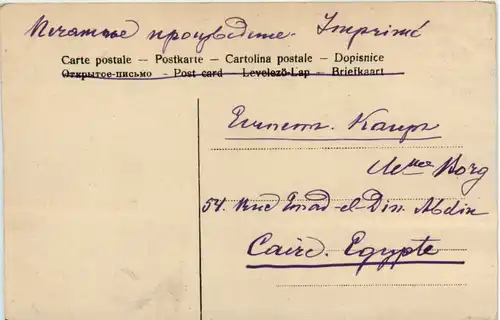 Печатное произведение. Imprimé
Carte postale – Postkarte – Cartolina postale – Dopisnice
Открытое-письмо - Post card – Levelező-Lap – Briefkaart
Египет. Каиръ
Borg
54. Rue Emad-el-Din. Abdin
Caire. Egypte